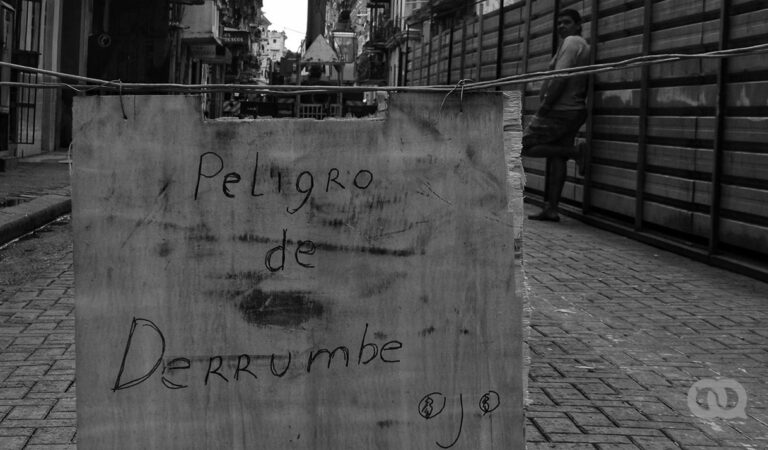 Peligro
de
Derrumbe
ojo